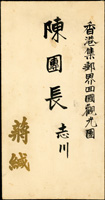 香港集郵界四國觀光團
陳團長 志川
蔣緘